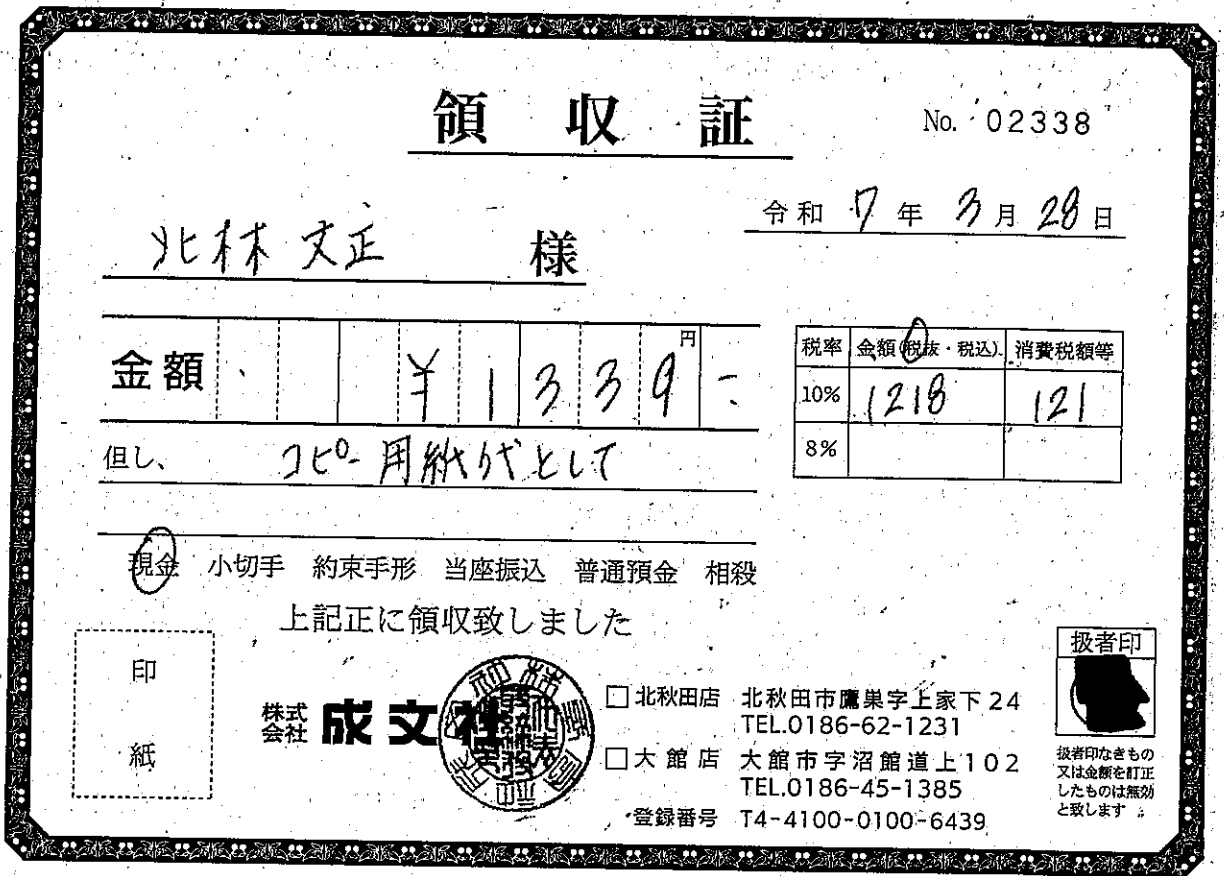 領収証
No. 02338
令和 7 年 3 月 28 日
北林 文正 様
金額 ¥1339- 円
税率 金額(税抜・税込) 消費税額等
10% 1218 121
8%
但し、 コピー用紙代として
現金 小切手 約束手形 当座振込 普通預金 相殺
上記正に領収致しました
印紙
株式会社 成文社
□北秋田店 北秋田市鷹巣字上家下24
TEL.0186-62-1231
□大館店 大館市字沼館道上102
TEL.0186-45-1385
登録番号 T4-4100-0100-6439
扱者印
扱者印なきもの
又は金額を訂正
したものは無効
と致します